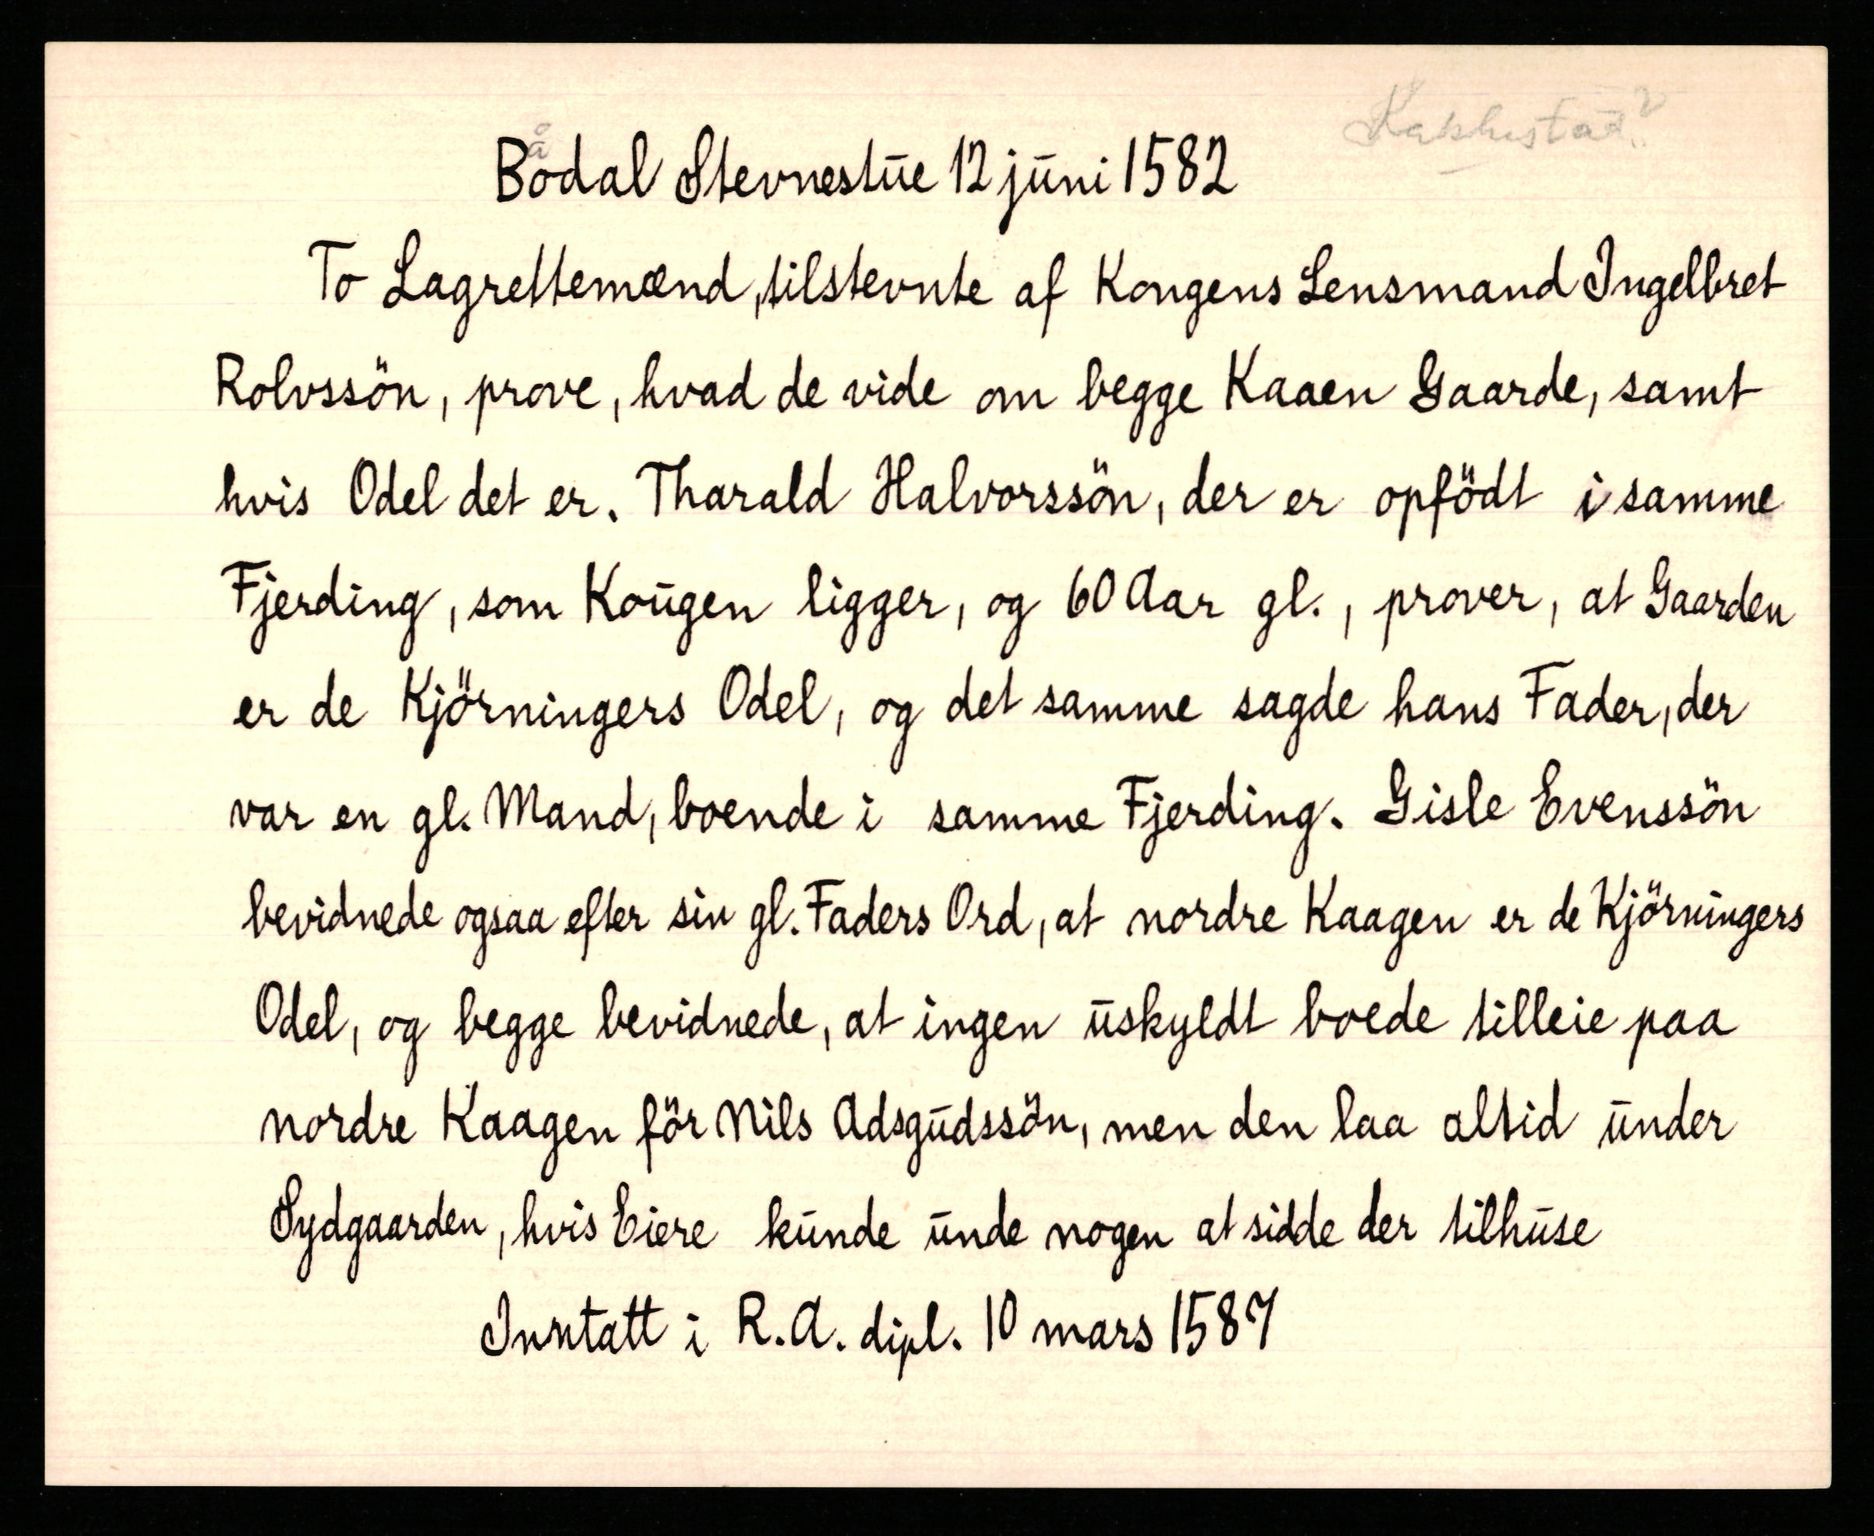 Bodal Stevnestue 12 juni 1582
To Lagrettemænd, tilstevnte af Kongens Lensmand Ingelbret
Rolvssön, prove, hvad de vide om begge Kaaen Gaarde, samt
hvis Odel det er. Tharald Halvorssön, der er opfödt i samme
Fjerding, som Kougen ligger, og 60 Aar gl., prover, at Gaarden
er de Kjörningers Odel, og det samme sagde hans Fader, der
var en gl. Mand, boende i samme Fjerding. Gisle Evenssön
bevidnede ogsaa efter sin gl. Faders Ord, at nordre Kaagen er de Kjörningers
Odel, og begge bevidnede, at ingen uskyldt boede tilleie paa
nordre Kaagen för Nils Adsgudssön, men den laa altid under
Sydgaarden, hvis Eiere kunde unde nogen at sidde der tilhuse
Inntatt i R.A. dipl. 10 mars 1587